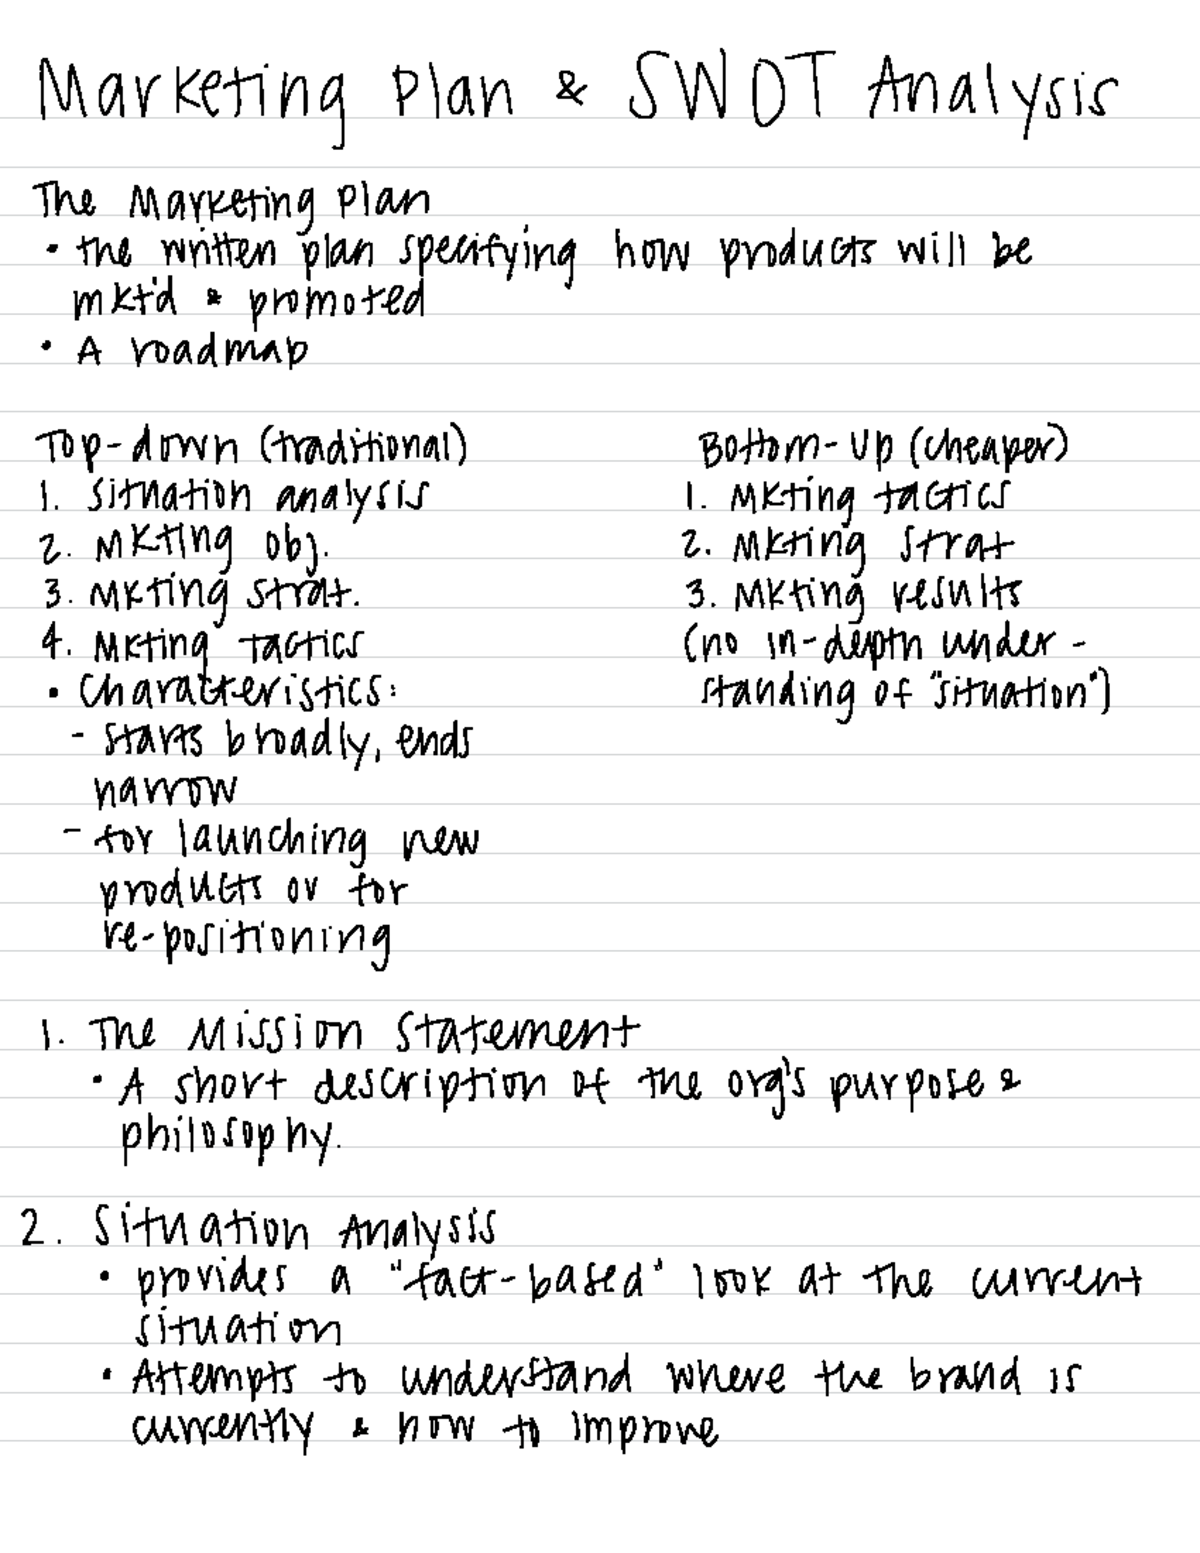 Marketing Plan & SWOT Analysis
The Marketing Plan
• the written plan specifying how products will be
mkt'd & promoted
• A roadmap
Top-down (traditional)
1. Situation analysis
2. Mkting obj.
3. Mkting strat.
4. Mkting tactics
• Characteristics:
- starts broadly, ends
narrow
- for launching new
products or for
re-positioning
Bottom-Up (cheaper)
1. Mkting tactics
2. Mkting strat
3. Mkting results
(no in-depth under-
standing of "situation")
1. The Mission Statement
• A short description of the org's purpose &
philosophy.
2. Situation Analysis
• provides a "fact-based" look at the current
situation
• Attempts to understand where the brand is
currently & how to improve